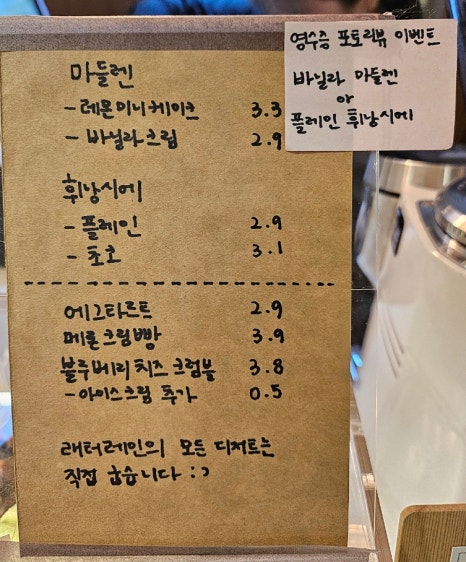 마들렌
- 레몬미니케이크 3.3
- 바닐라크림 2.9
휘낭시에
- 플레인 2.9
- 초코 3.1
에그타르트 2.9
메론크림빵 3.9
블루베리치즈크럼블 3.8
- 아이스크림 추가 0.5
래터레인의 모든 디저트는
직접 굽습니다 :)
영수증 포토리뷰 이벤트
바닐라 마들렌
or
플레인 휘낭시에